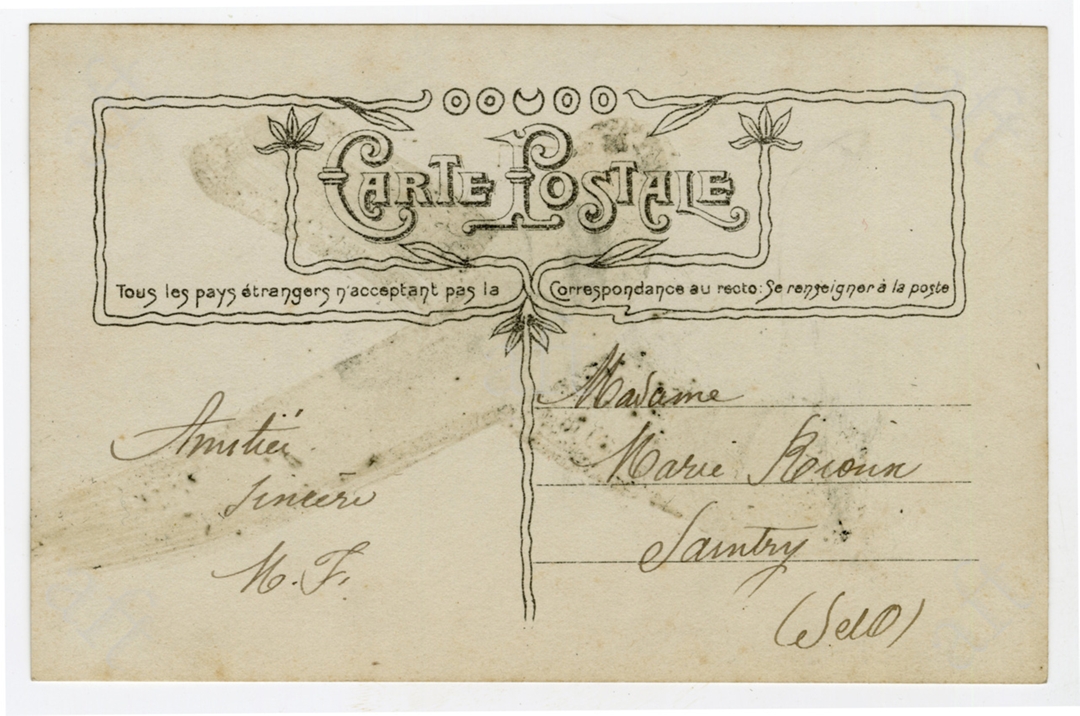 CARTE POSTALE
Tous les pays étrangers n'acceptant pas la Correspondance au recto: Se renseigner à la poste
Amitié
sincère
M. F.
Madame
Marie
Saintry
(S et O)